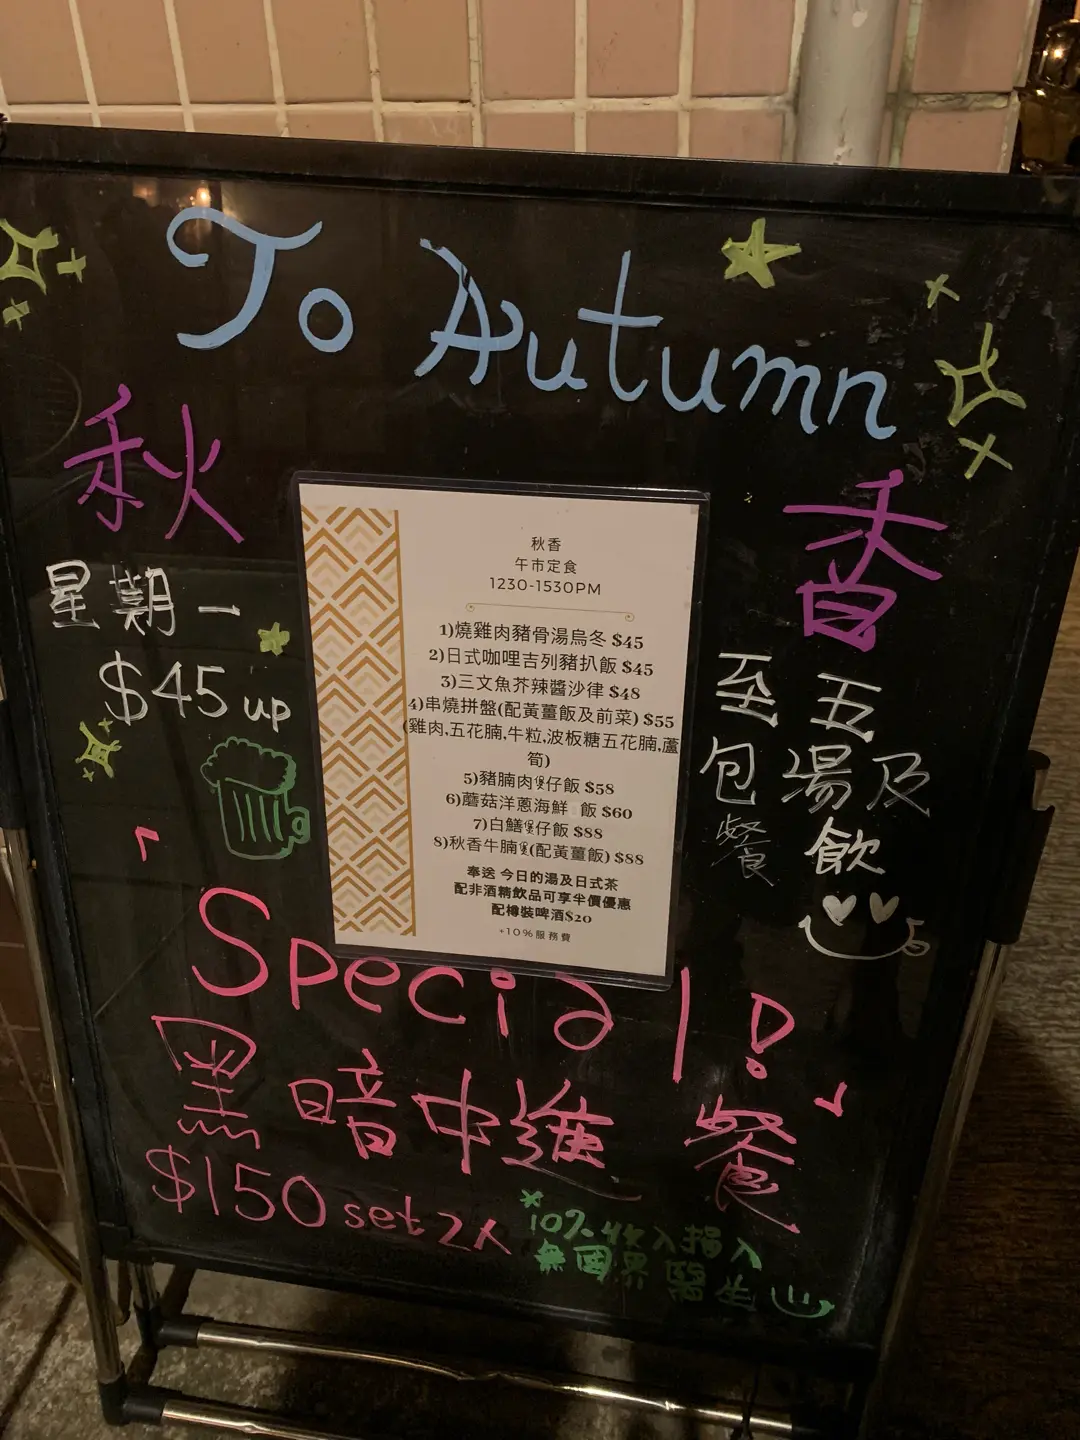 To Autumn
秋香
星期一至五
$45 up
包湯及飲
餐
秋香
午市定食
1230-1530PM
1)燒雞肉豬骨湯烏冬 $45
2)日式咖哩吉列豬扒飯 $45
3)三文魚芥辣醬沙律 $48
4)串燒拼盤(配黃薑飯及前菜) $55
(雞肉,五花腩,牛粒,波板糖五花腩,蘆
筍)
5)豬腩肉煲仔飯 $58
6)蘑菇洋蔥海鮮 飯 $60
7)白鱔煲仔飯 $88
8)秋香牛腩煲(配黃薑飯) $88
奉送 今日的湯及日式茶
配非酒精飲品可享半價優惠
配樽裝啤酒$20
+10%服務費
Special!
黑暗中進餐
$150 set 2人
*10%收入捐入
無國界醫生